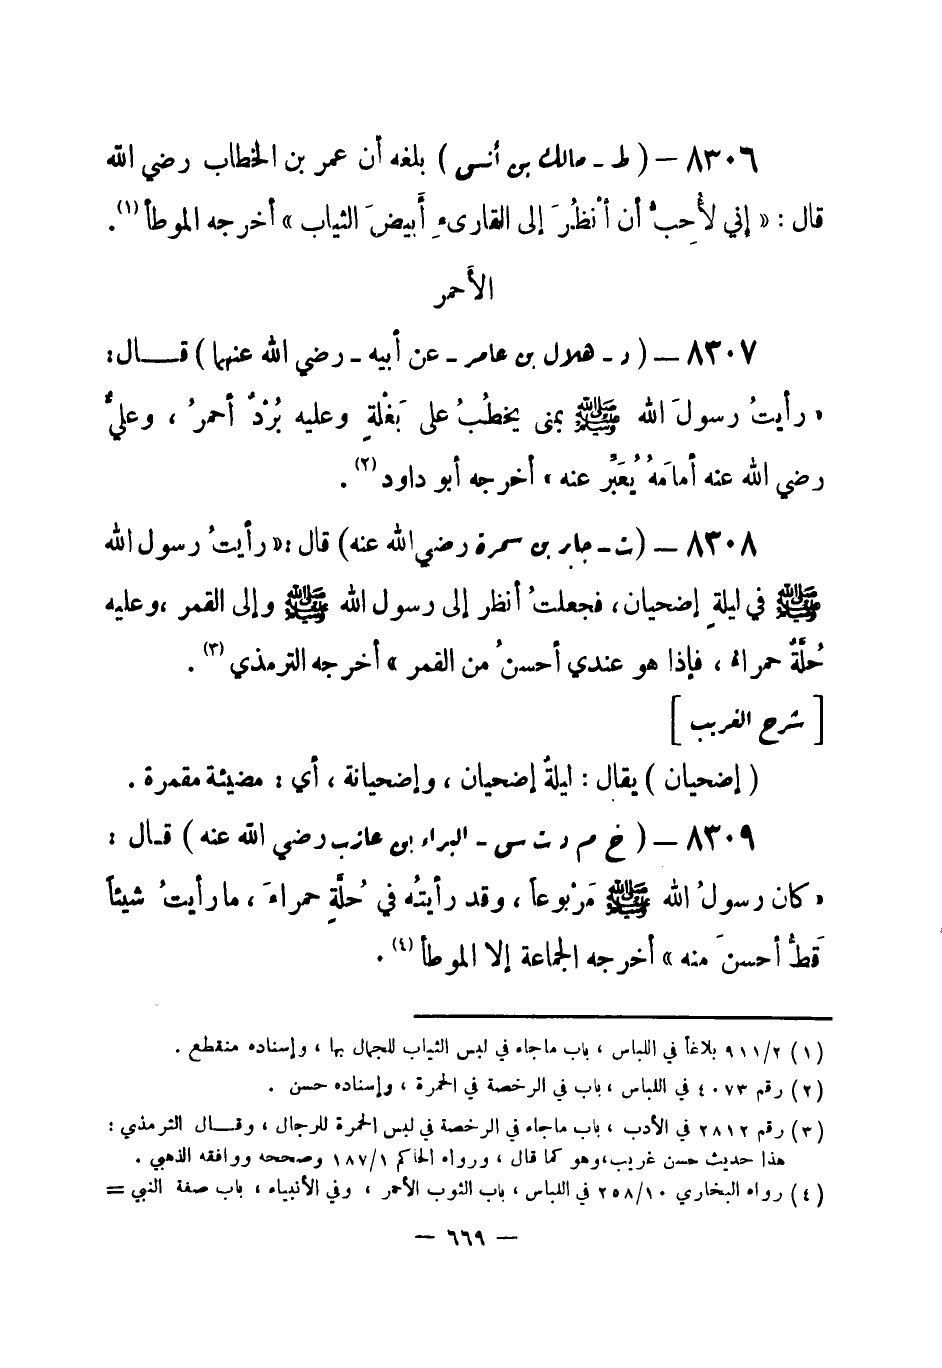 ٨٣٠٦ – ( ط - مالك بن أنس ) بلغه أن عمر بن الخطاب رضي الله
قال : « إني لأُحِبُّ أن أنْظُرَ إلى القارىءِ أبيضَ الثياب » أخرجه الموطأ (١) .
الأحمر
٨٣٠٧ – ( د - هلال بن عامر - عن أبيه - رضي الله عنهما ) قـــال :
« رأيتُ رسولَ الله ﷺ بمنى يخطُبُ على بَغْلةٍ وعليه بُرْدٌ أحمرُ ، وعليٌّ
رضي الله عنه أمامَهُ يُعَبِّرُ عنه » أخرجه أبو داود (٢) .
٨٣٠٨ – (ت - جابر بن سمرة رضي الله عنه) قال :« رأيتُ رسول الله
ﷺ في ليلةٍ إضحيان ، فجعلتُ أنظر إلى رسول الله ﷺ وإلى القمر ،وعليه
حُلَّةٌ حمراءُ ، فإذا هو عندي أحسنُ من القمر » أخرجه الترمذي (٣) .
[ شرح الغريب ]
( إضحيان ) يقال : ليلةٌ إضحيان ، وإضحيانة ، أي : مضيئة مقمرة .
٨٣٠٩ – ( خ م د ت س - البراء بن عازب رضي الله عنه ) قـال :
« كان رسولُ الله ﷺ مَرْبوعاً ، وقد رأيتُه في حُلَّةٍ حمراءَ ، ما رأيتُ شيئاً
قَطُّ أحسنَ منه » أخرجه الجماعة إلا الموطأ (٤) .
(١) ٩١١/٢ بلاغاً في اللباس ، باب ماجاء في لبس الثياب للجمال بها ، وإسناده منقطع .
(٢) رقم ٤٠٧٣ في اللباس ، باب في الرخصة في الحمرة ، وإسناده حسن .
(٣) رقم ٢٨١٢ في الأدب ، باب ماجاء في الرخصة في لبس الحمرة للرجال ، وقـــال الترمذي :
هذا حديث حسن غريب،وهو كما قال ، ورواه الحاكم ١٨٧/١ وصححه ووافقه الذهبي .
(٤) رواه البخاري ٢٥٨/١٠ في اللباس ، باب الثوب الأحمر ، وفي الأنبياء ، باب صفة النبي =
– ٦٦٩ –